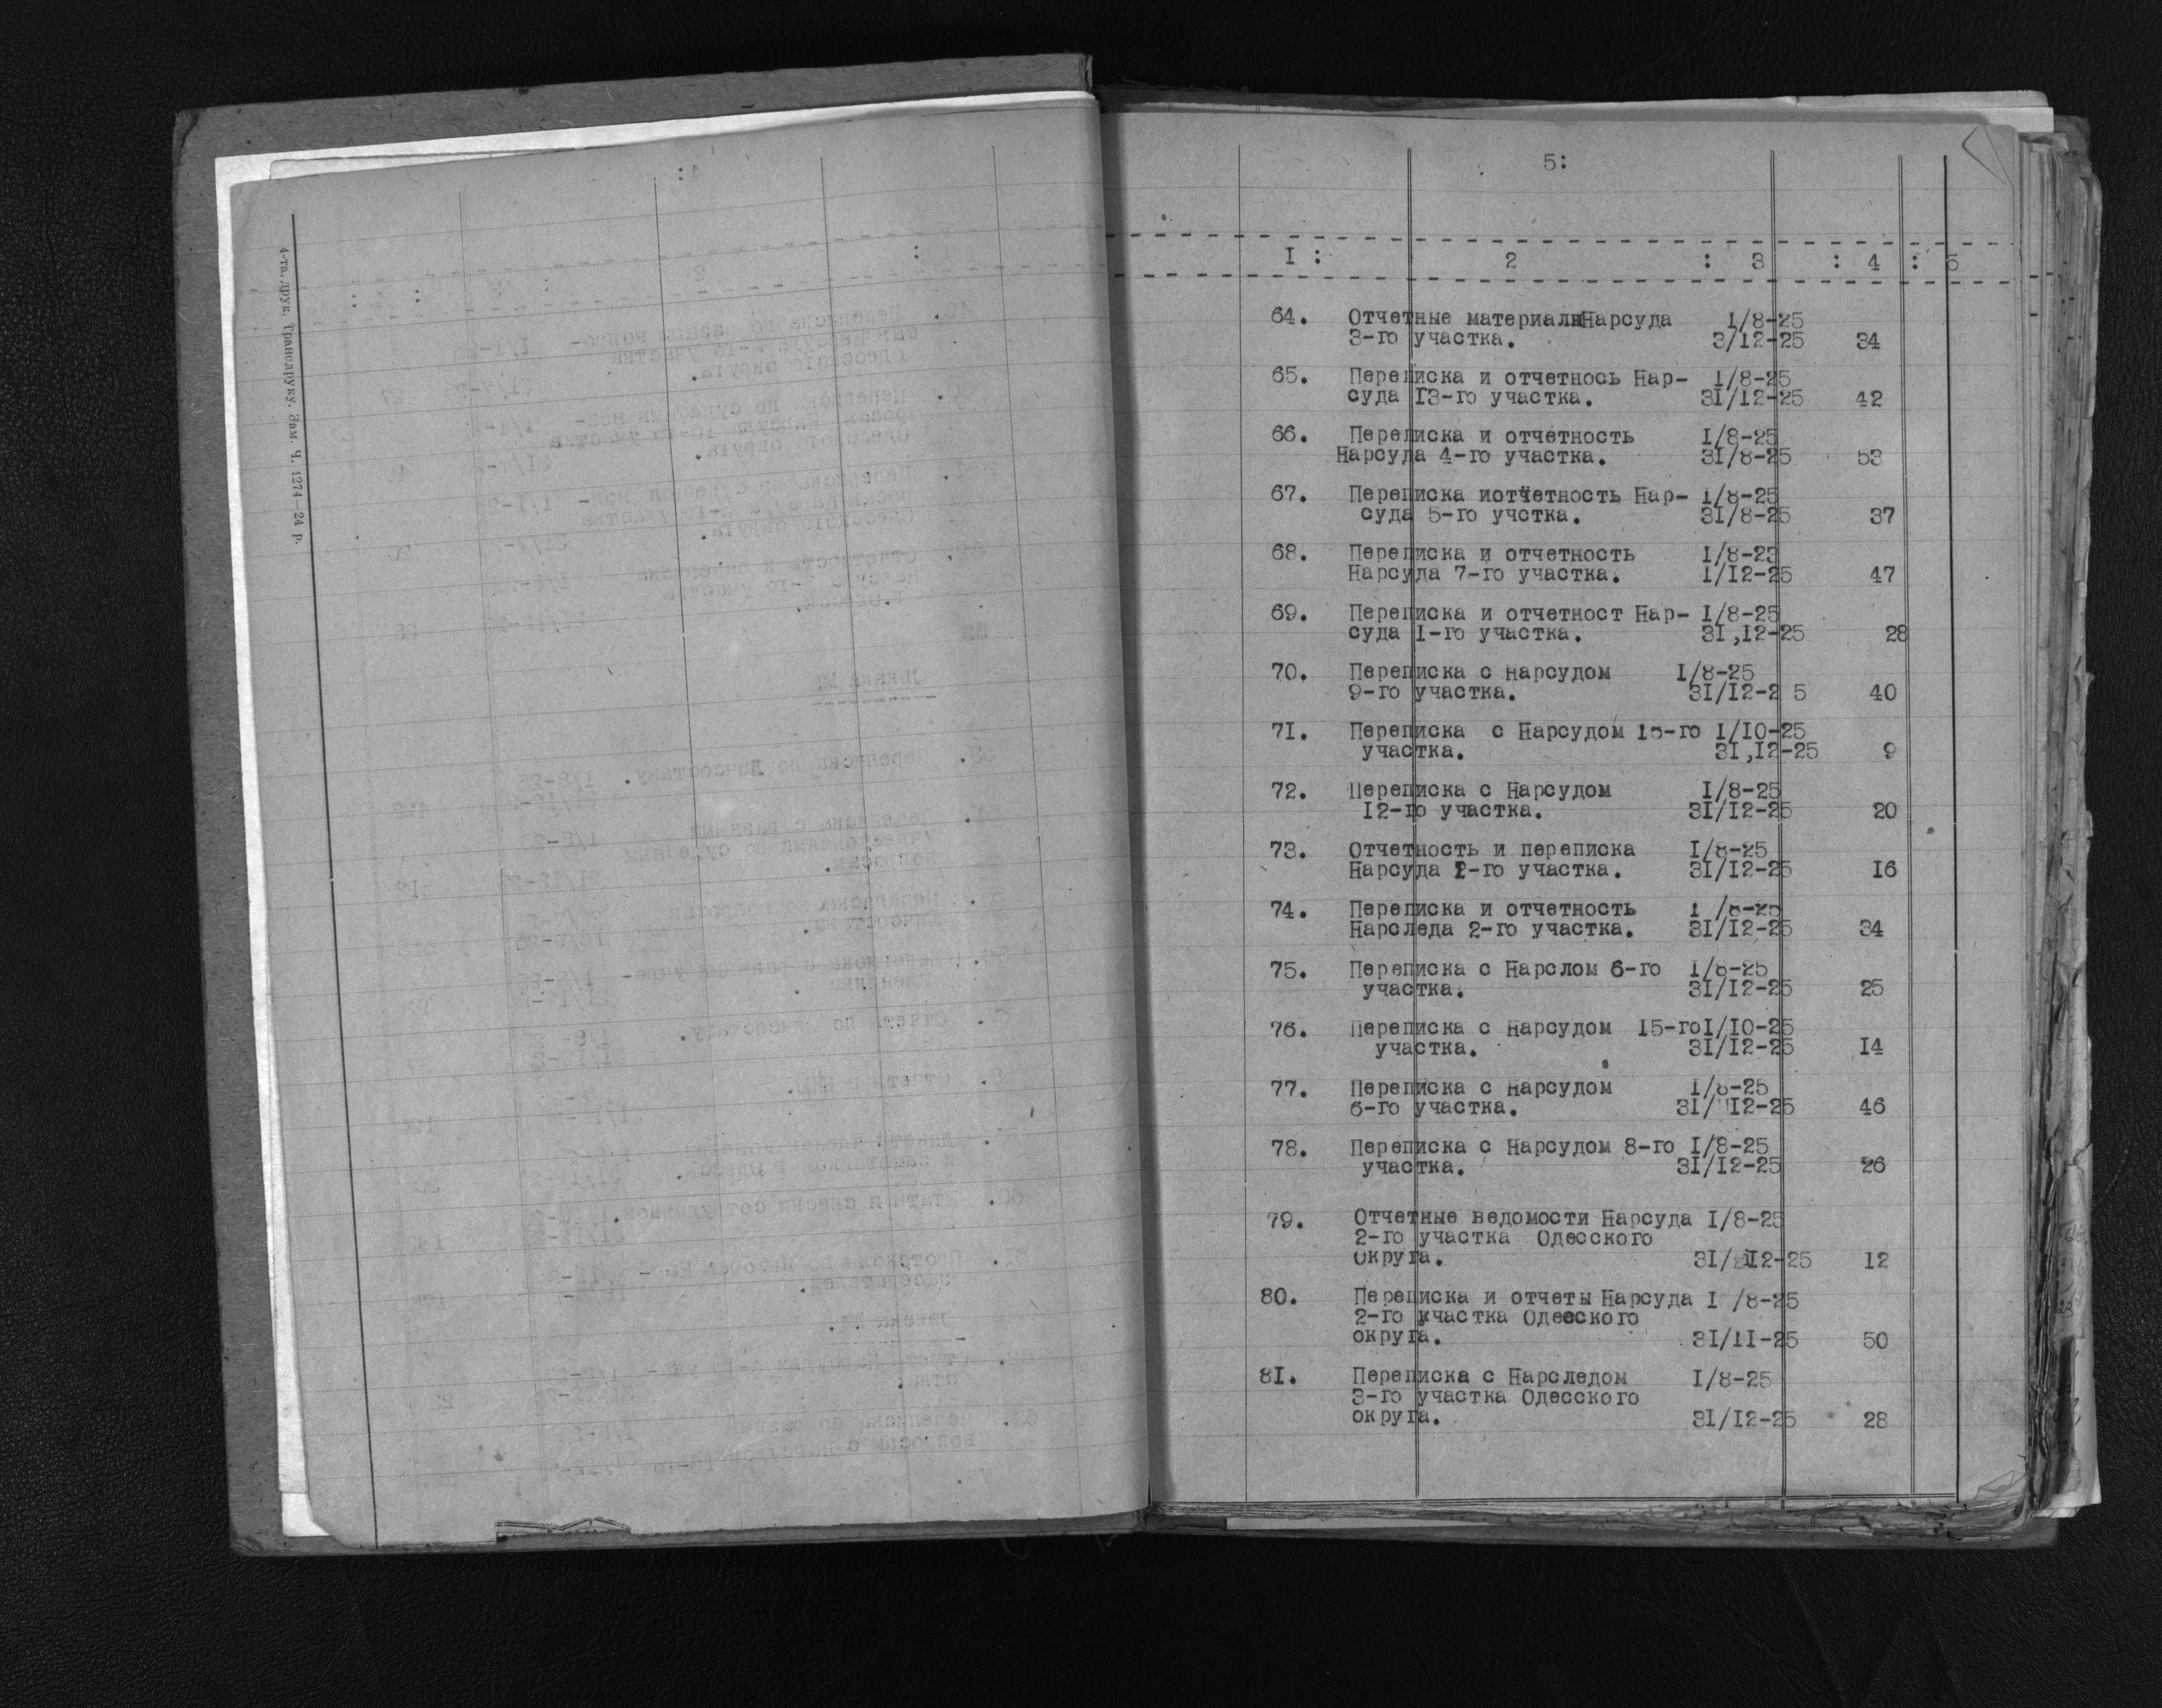 4-та друк. Трансдруку. Зам. Ч. 1274—24 р.
5:
I : 2 : 3 : 4 : 5
64. Отчетные материалы Нарсуда 1/8-25
3-го участка. 3/12-25 34
65. Переписка и отчетнось Нар- 1/8-25
суда 13-го участка. 31/12-25 42
66. Переписка и отчетность 1/8-25
Нарсуда 4-го участка. 31/8-25 53
67. Переписка иотчетность Нар- 1/8-25
суда 5-го учстка. 31/8-25 37
68. Переписка и отчетность 1/8-23
Нарсуда 7-го участка. 1/12-25 47
69. Переписка и отчетност Нар- 1/8-25
суда 1-го участка. 31,12-25 28
70. Переписка с Нарсудом 1/8-25
9-го участка. 31/12-2 5 40
71. Переписка с Нарсудом 15-го 1/10-25
участка. 31,12-25 9
72. Переписка с Нарсудом 1/8-25
12-го участка. 31/12-25 20
73. Отчетность и переписка 1/8-25
Нарсуда 2-го участка. 31/12-25 16
74. Переписка и отчетность 1 /8-25
Нарследа 2-го участка. 31/12-25 34
75. Переписка с Нарслом 6-го 1/8-25
участка. 31/12-25 25
76. Переписка с Нарсудом 15-го1/10-25
участка. 31/12-25 14
77. Переписка с Нарсудом 1/8-25
6-го участка. 31/12-25 46
78. Переписка с Нарсудом 8-го 1/8-25
участка. 31/12-25 26
79. Отчетные ведомости Нарсуда 1/8-25
2-го участка Одесского
округа. 31/12-25 12
80. Переписка и отчеты Нарсуда 1 /8-25
2-го участка Одесского
округа. 31/11-25 50
81. Переписка с Нарследом 1/8-25
3-го участка Одесского
округа. 31/12-25 28